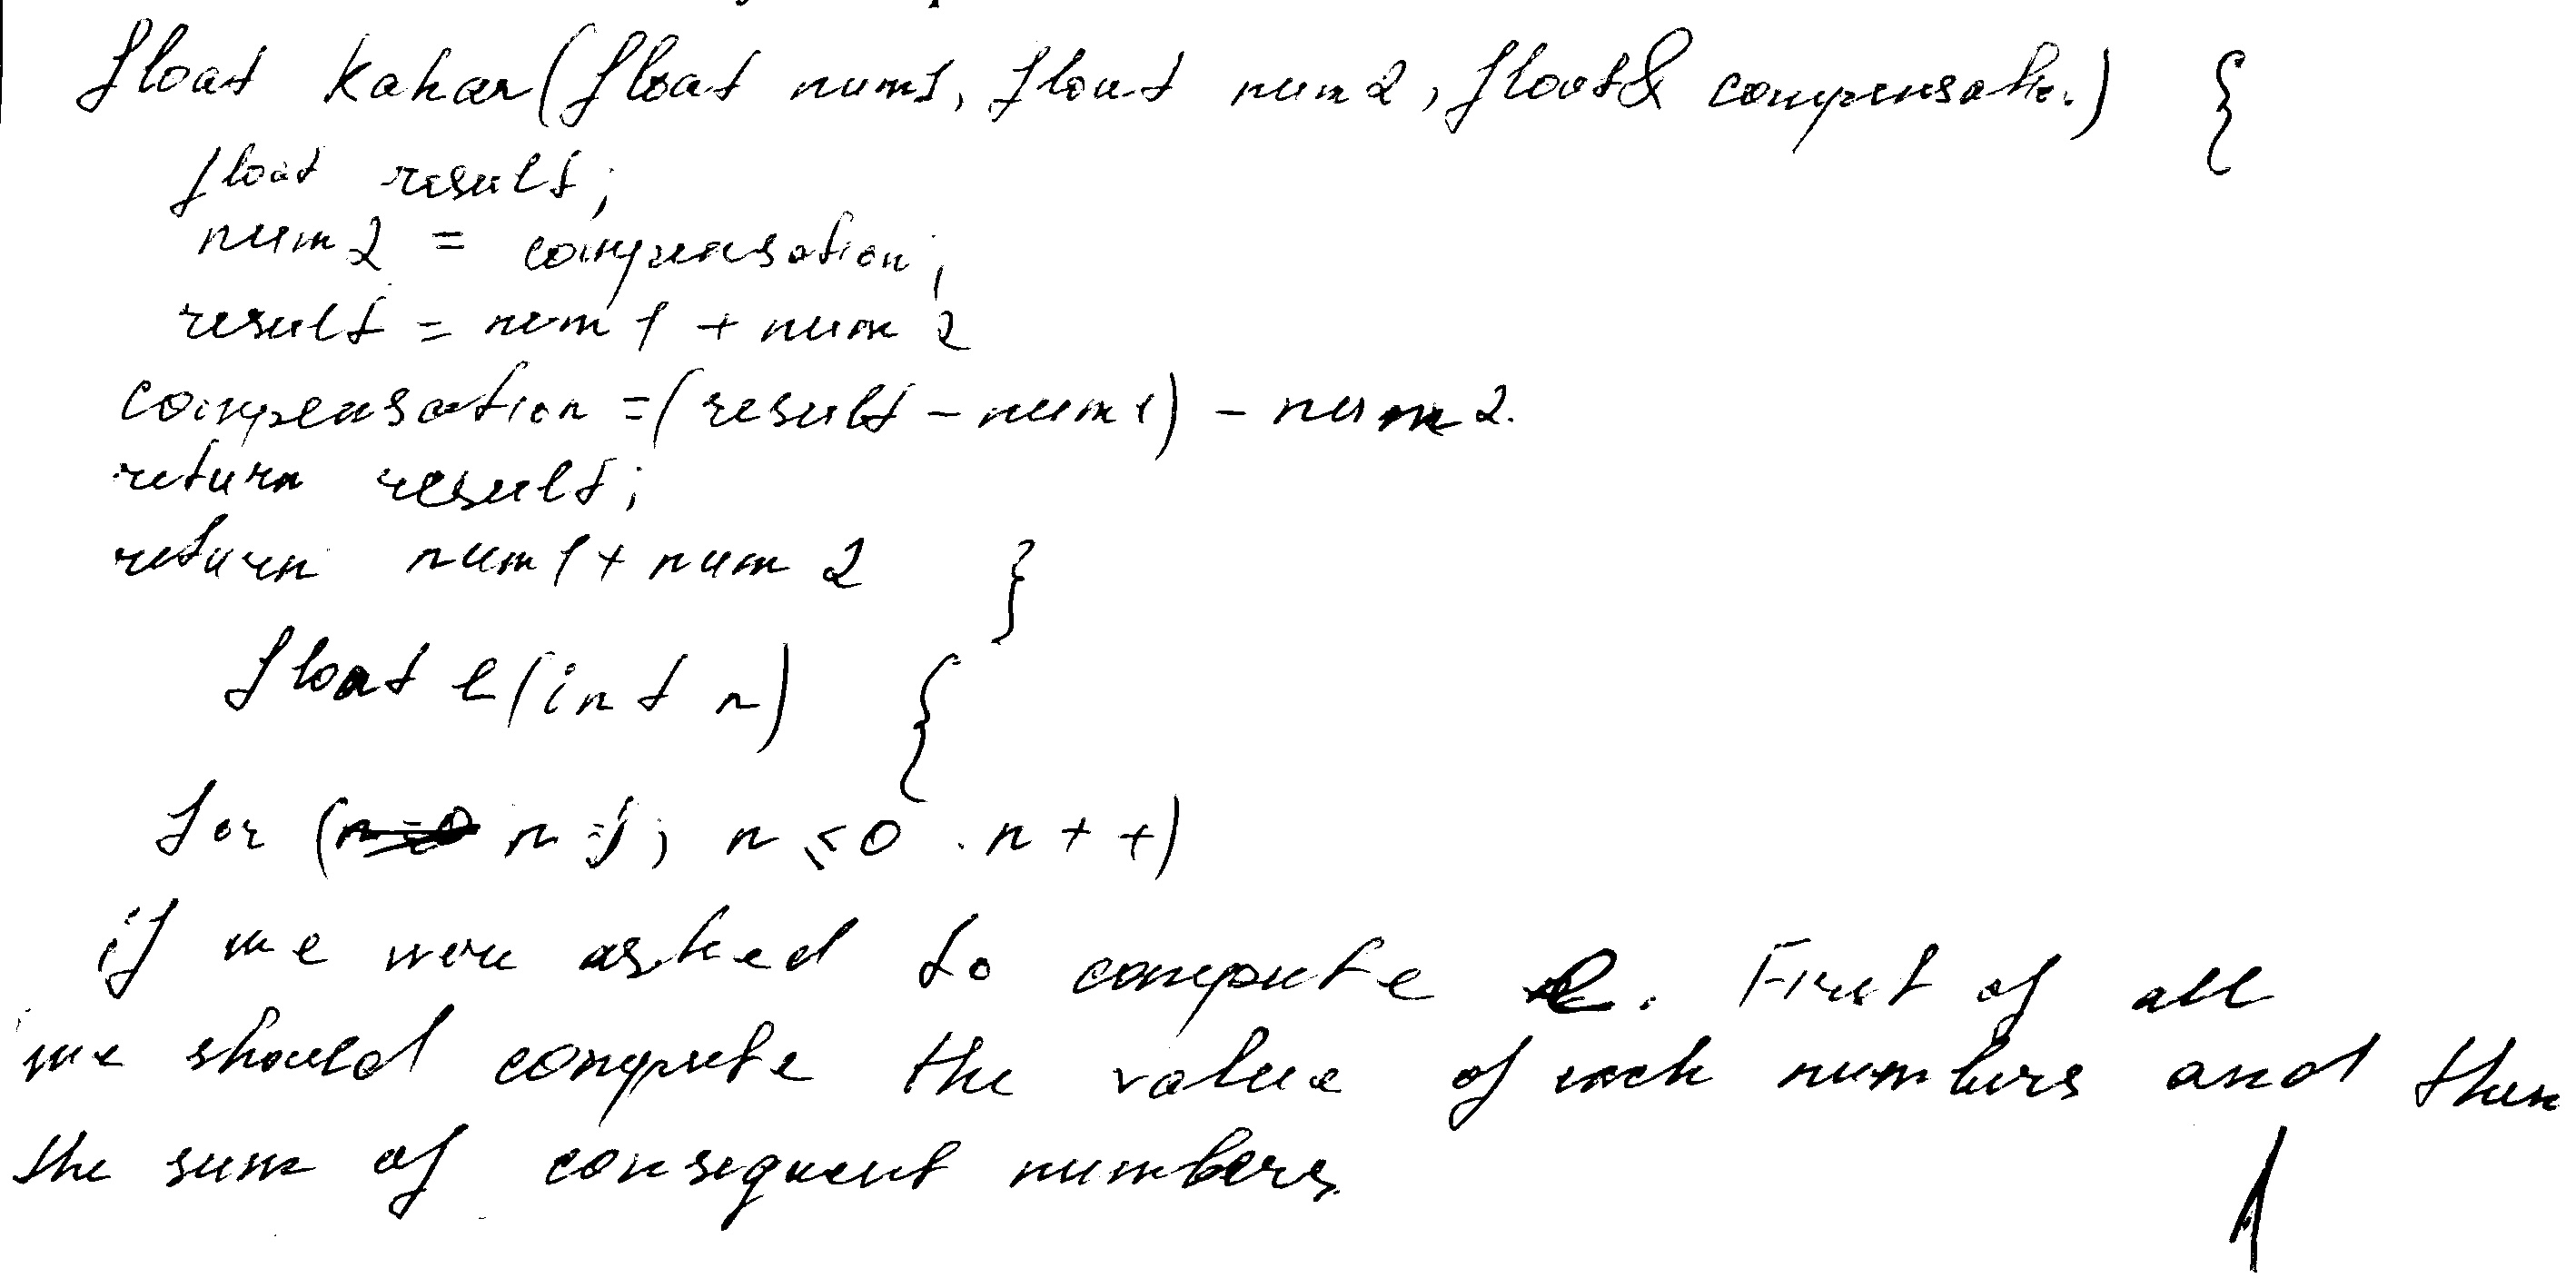 float kahan(float num1, float num2, float& compensatio.) {
float result;
num2 = compensation;
result = num 1 + num 2
compensation = (result - num1) - num 2.
return result;
return num1 + num 2 }
float e(int n) {
for (n = 1; n ≤ 0 . n + +)
if we were asked to compute e. First of all
we should compute the value of each numbers and then
the sum of consequent numbers.